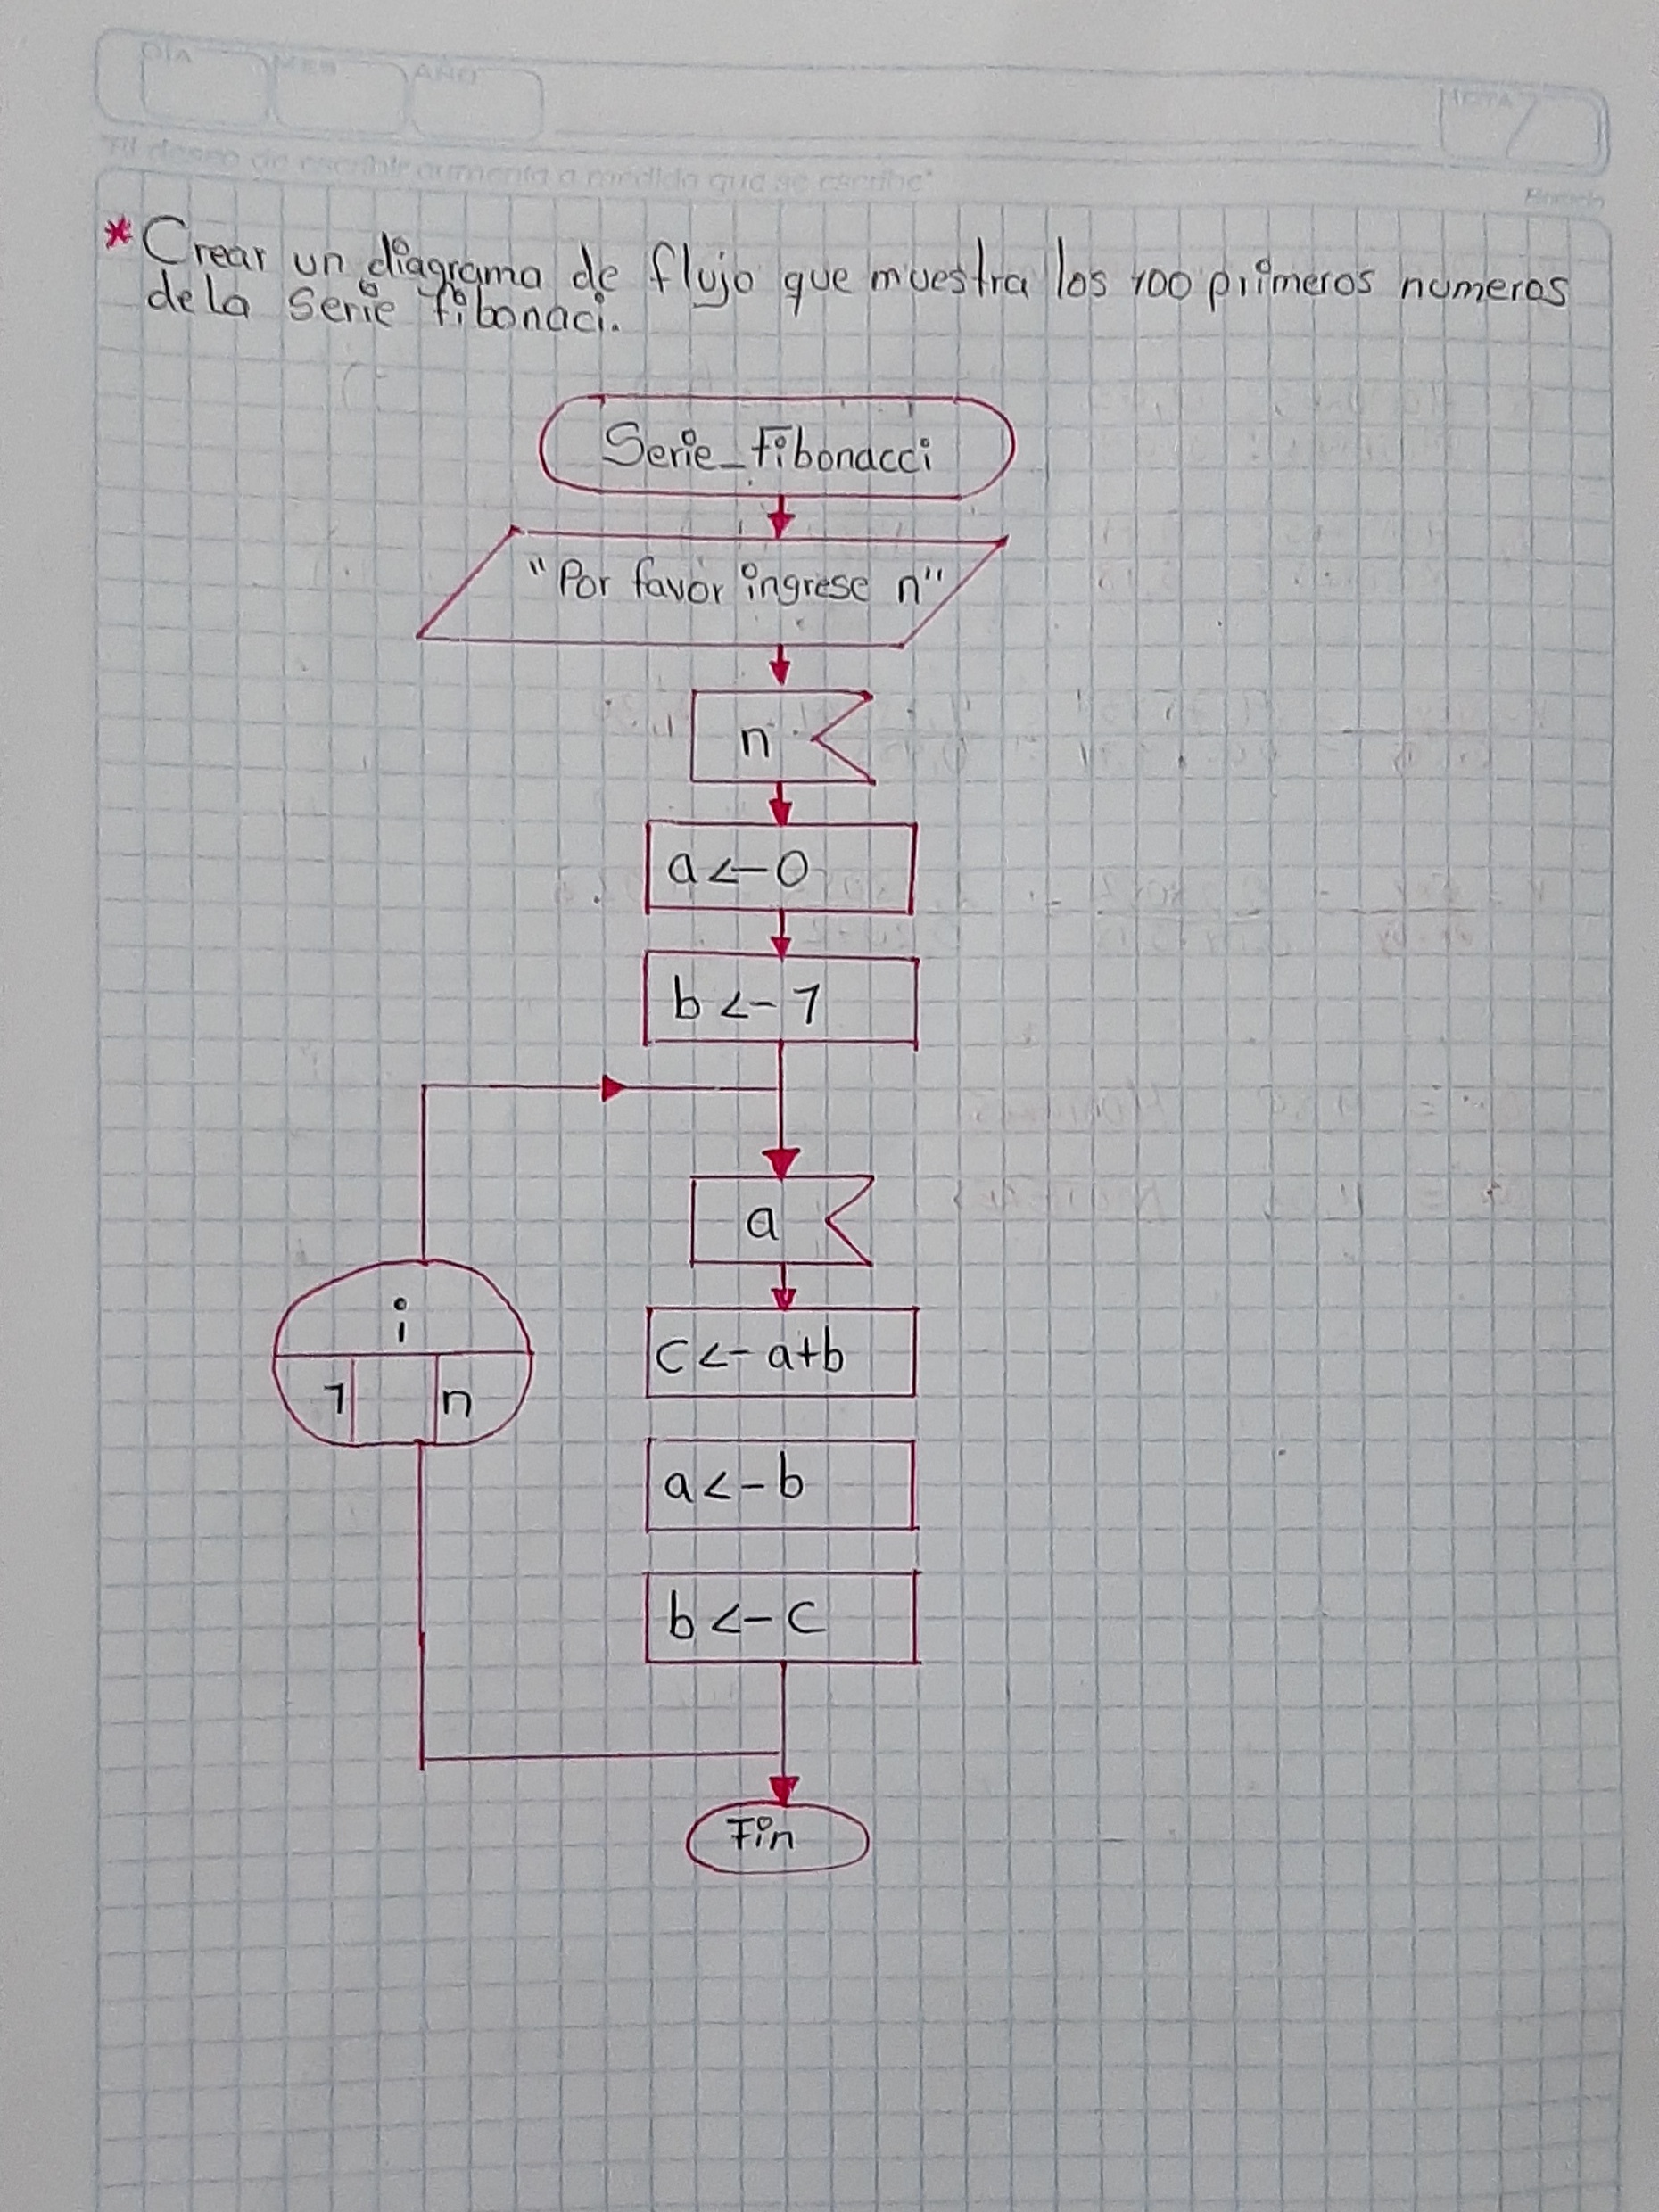 DÍA MES AÑO NOTA
"El deseo de escribir aumenta a medida que se escribe"
* Crear un diagrama de flujo que muestra los 100 primeros numeros
de la Serie fibonaci.
Serie_Fibonacci
"Por favor ingrese n"
n
a <- 0
b <- 1
a
i
c <- a+b
1 n
a <- b
b <- c
Fin